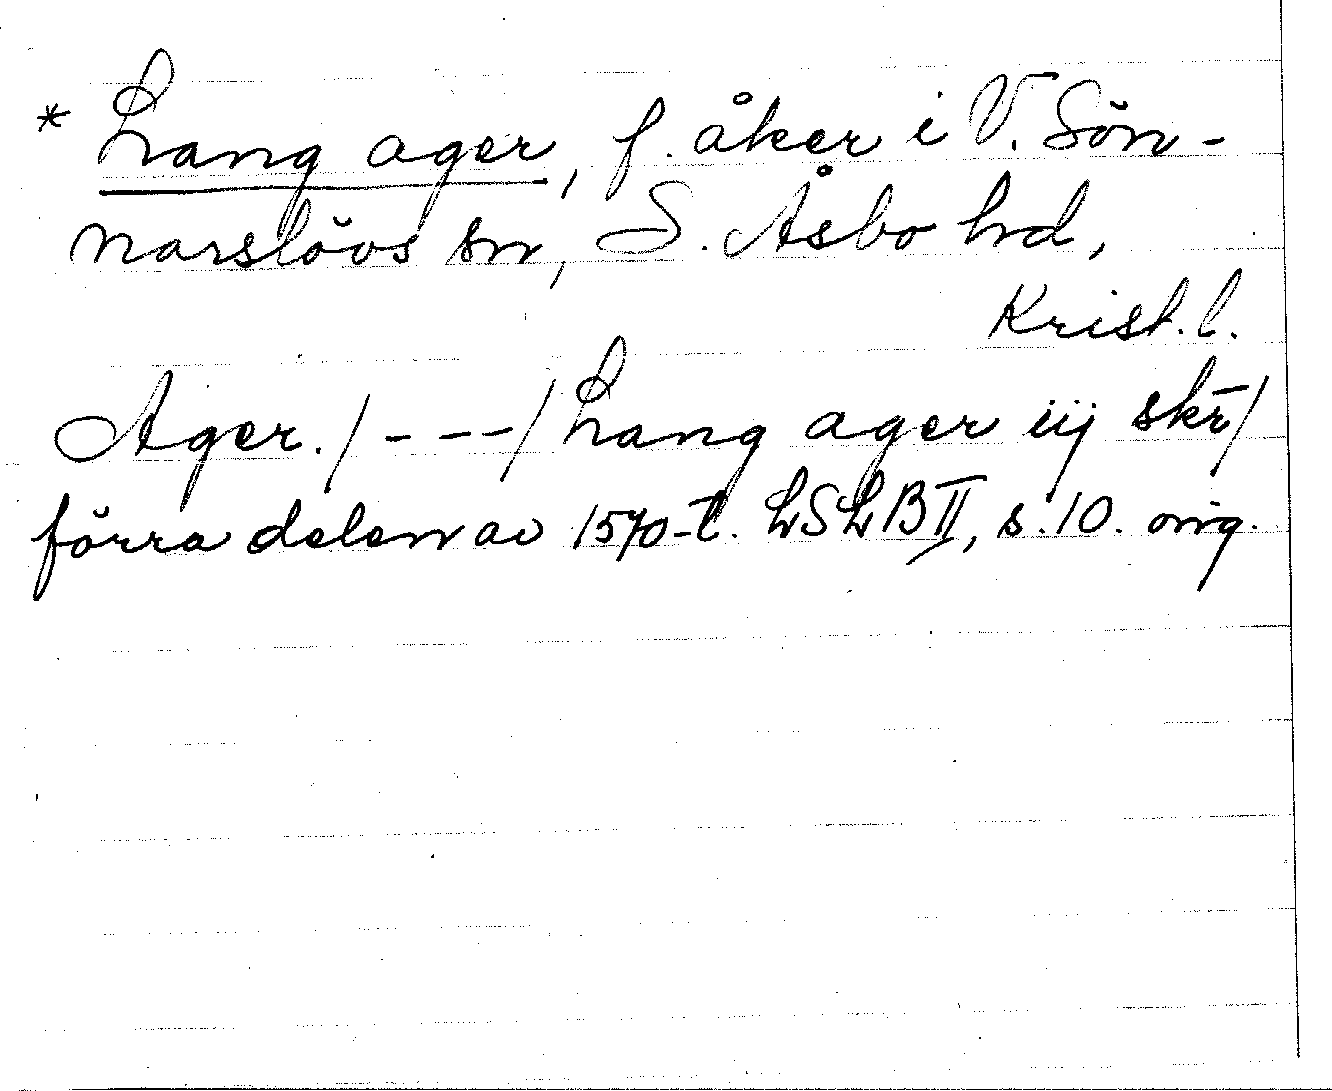 * Lang ager, f. åker i V. Sön-
narslövs sn, S. Åsbo hd,
Krist. l.
Ager. / - - - / Lang ager iij skr̄ /
förra delen av 1570-t. LSLB II, s. 10. orig.